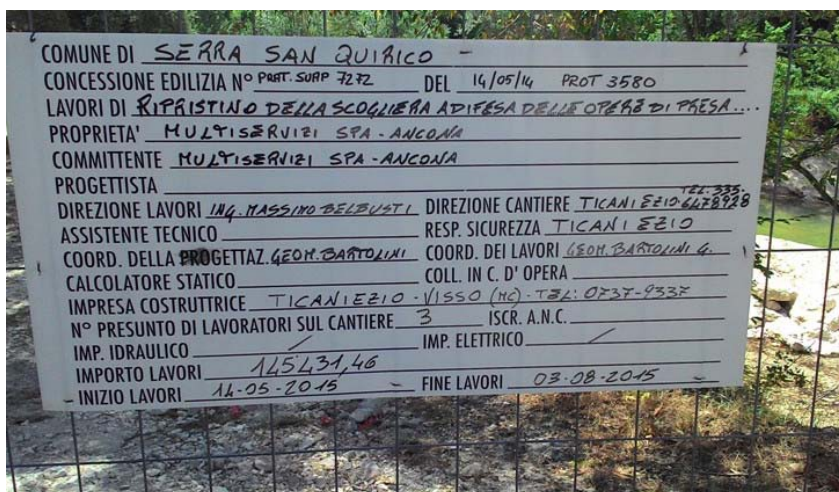 COMUNE DI SERRA SAN QUIRICO -
CONCESSIONE EDILIZIA N° PRAT. SUAP 7272 DEL 14/05/14 PROT 3580
LAVORI DI RIPRISTINO DELLA SCOGLIERA A DIFESA DELLE OPERE DI PRESA....
PROPRIETA' MULTISERVIZI SPA - ANCONA
COMMITTENTE MULTISERVIZI SPA - ANCONA
PROGETTISTA
DIREZIONE LAVORI ING. MASSIMO BELBUSTI DIREZIONE CANTIERE TICANI EZIO TEL: 335-6478928
ASSISTENTE TECNICO RESP. SICUREZZA TICANI EZIO
COORD. DELLA PROGETTAZ. GEOM. BARTOLINI COORD. DEI LAVORI GEOM. BARTOLINI G.
CALCOLATORE STATICO COLL. IN C. D' OPERA
IMPRESA COSTRUTTRICE TICANI EZIO - VISSO (MC) - TEL: 0737-9337
N° PRESUNTO DI LAVORATORI SUL CANTIERE 3 ISCR. A.N.C.
IMP. IDRAULICO / IMP. ELETTRICO /
IMPORTO LAVORI 145431,46
INIZIO LAVORI 14-05-2015 - FINE LAVORI 03-08-2015